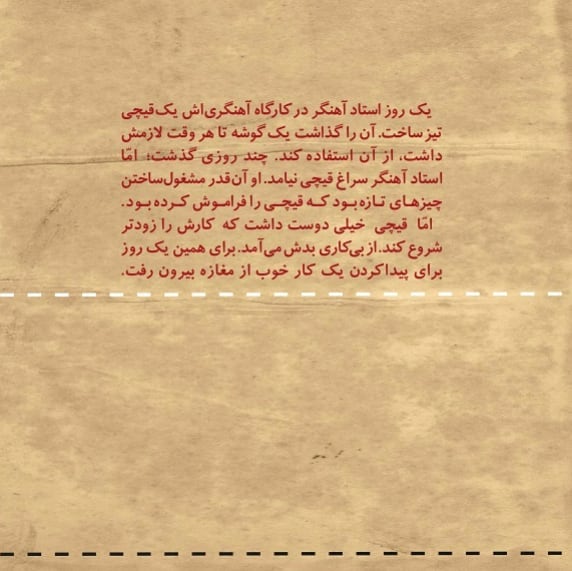 یک روز استاد آهنگر در کارگاه آهنگری‌اش یک‌قیچی
تیز ساخت. آن را گذاشت یک گوشه تا هر وقت لازمش
داشت، از آن استفاده کند. چند روزی گذشت؛ امّا
استاد آهنگر سراغ قیچی نیامد. او آن‌قدر مشغول‌ساختن
چیزهای تازه بود که قیچی را فراموش کرده بود.
امّا قیچی خیلی دوست داشت که کارش را زودتر
شروع کند. از بی‌کاری بدش می‌آمد. برای همین یک روز
برای پیداکردن یک کار خوب از مغازه بیرون رفت.